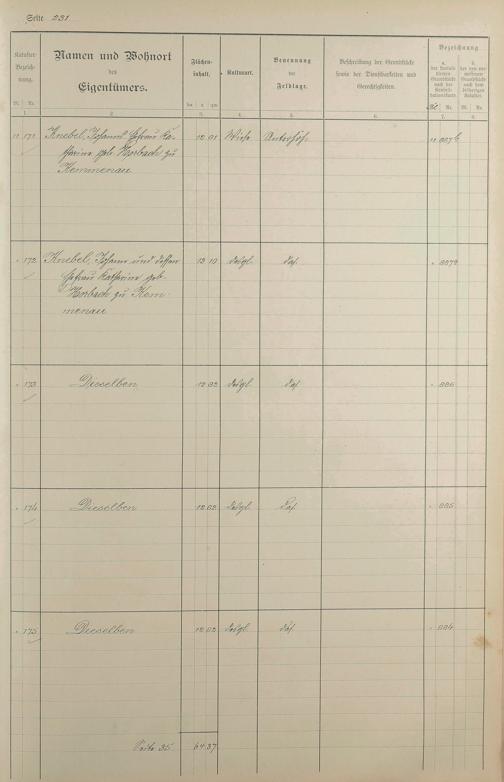 Seite 231.
Kataster-Bezeichnung.
Namen und Wohnort
des
Eigentümers.
Flächen-
inhalt.
Kulturart.
Benennung
der
Feldlage.
Beschreibung der Grundstücke
sowie der Dienstbarkeiten und
Gerechtigkeiten.
Bezeichnung
Bl. Nr. ha a qm Nr.
1. 2. 3. 4. 5. 6. 7. 8.
171 Knebel, Johann Ehefrau Ka-
tharina geb. Horbach zu
Kemmenau
12 01 Wiese
" 172 Knebel, Johann und dessen
Ehefrau Katharina geb.
Horbach zu Kem-
menau
13 10 desgl. das.
" 173 Dieselben 12 02 desgl. das. " 886
" 174 Dieselben 12 02 desgl. das. " 885
" 175 Dieselben 12 02 desgl. das. " 884
Seite 35 64 37